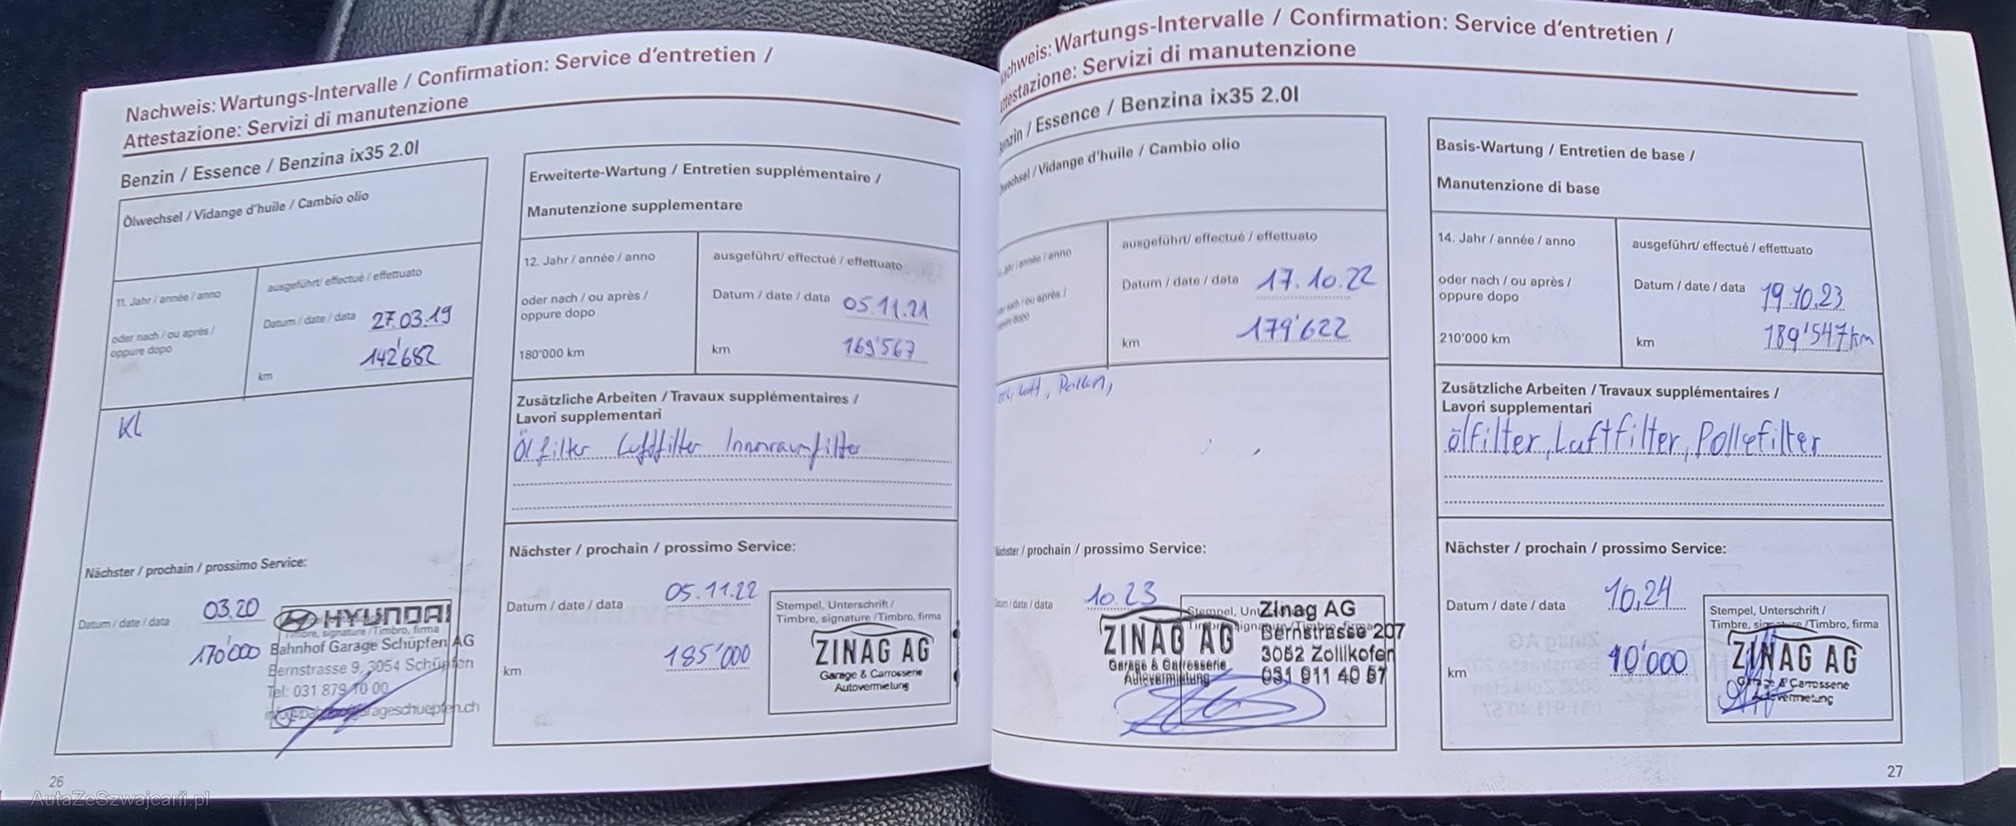 Nachweis: Wartungs-Intervalle / Confirmation: Service d'entretien /
Attestazione: Servizi di manutenzione
Benzin / Essence / Benzina ix35 2.0l
Ölwechsel / Vidange d'huile / Cambio olio
11. Jahr / année / anno
ausgeführt/ effectué / effettuato
oder nach / ou après /
oppure dopo
Datum / date / data 27.03.19
km 142'682
Kl
Nächster / prochain / prossimo Service:
Datum / date / data 03.20
170'000
HYUNDAI
Timbre, signature /Timbro, firma
Bahnhof Garage Schüpfen AG
Bernstrasse 9, 3054 Schüpfen
Tel: 031 879 10 00
garageschuepfen.ch
26
Erweiterte-Wartung / Entretien supplémentaire /
Manutenzione supplementare
12. Jahr / année / anno
ausgeführt/ effectué / effettuato
oder nach / ou après /
oppure dopo
Datum / date / data 05.11.21
180'000 km
km 169'567
Zusätzliche Arbeiten / Travaux supplémentaires /
Lavori supplementari
Ölfilter Luftfilter Innenraumfilter
Nächster / prochain / prossimo Service:
Datum / date / data 05.11.22
km 185'000
Stempel, Unterschrift /
Timbre, signature /Timbro, firma
ZINAG AG
Garage & Carrosserie
Autovermietung
Nachweis: Wartungs-Intervalle / Confirmation: Service d'entretien /
Attestazione: Servizi di manutenzione
Benzin / Essence / Benzina ix35 2.0l
Ölwechsel / Vidange d'huile / Cambio olio
Jahr / année / anno
ausgeführt/ effectué / effettuato
nach / ou après /
oppure dopo
Datum / date / data 17.10.22
km 179'622
Luft, Pollen,
Nächster / prochain / prossimo Service:
Datum / date / data 10.23
ZINAG AG
Garage & Carrosserie
Autovermietung
Zinag AG
Bernstrasse 207
3052 Zollikofen
031 911 40 57
Basis-Wartung / Entretien de base /
Manutenzione di base
14. Jahr / année / anno
ausgeführt/ effectué / effettuato
oder nach / ou après /
oppure dopo
Datum / date / data 19.10.23
210'000 km
km 189'547 km
Zusätzliche Arbeiten / Travaux supplémentaires /
Lavori supplementari
ölfilter, Luftfilter, Pollefilter
Nächster / prochain / prossimo Service:
Datum / date / data 10.24
km 10'000
Stempel, Unterschrift /
Timbre, signature /Timbro, firma
ZINAG AG
Garage & Carrosserie
Autovermietung
27
AutaZeSzwajcarii.pl